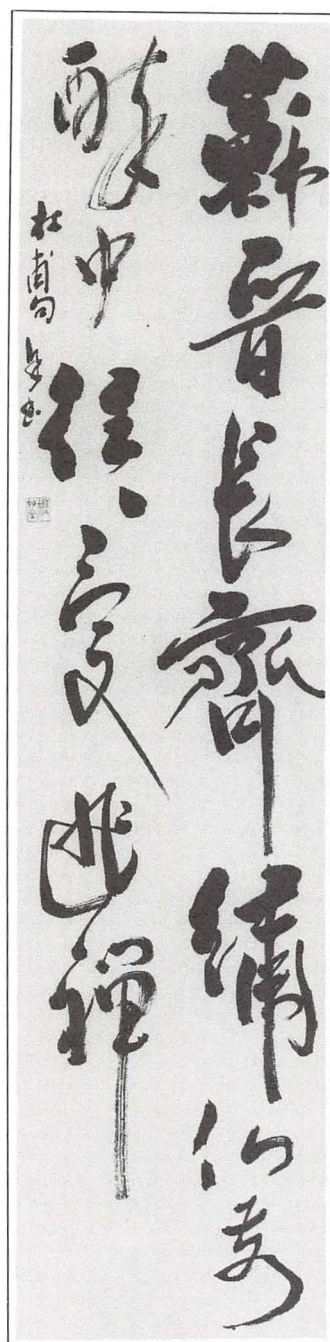 蘇晉長齋繡仏前
醉中往々愛逃禪
杜甫句 書